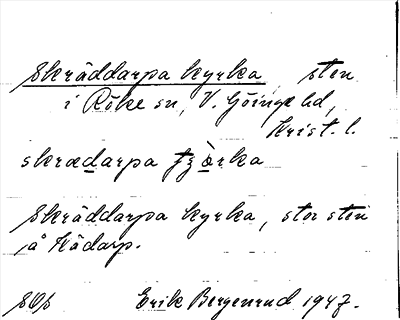 Skräddarpa kyrka, sten
i Röke sn, V. Göinge hd,
Krist. l.
skrædarpa
Skräddarpa kyrka, stor sten
å Hådarp.
SOs Erik Bergenrud 1947.